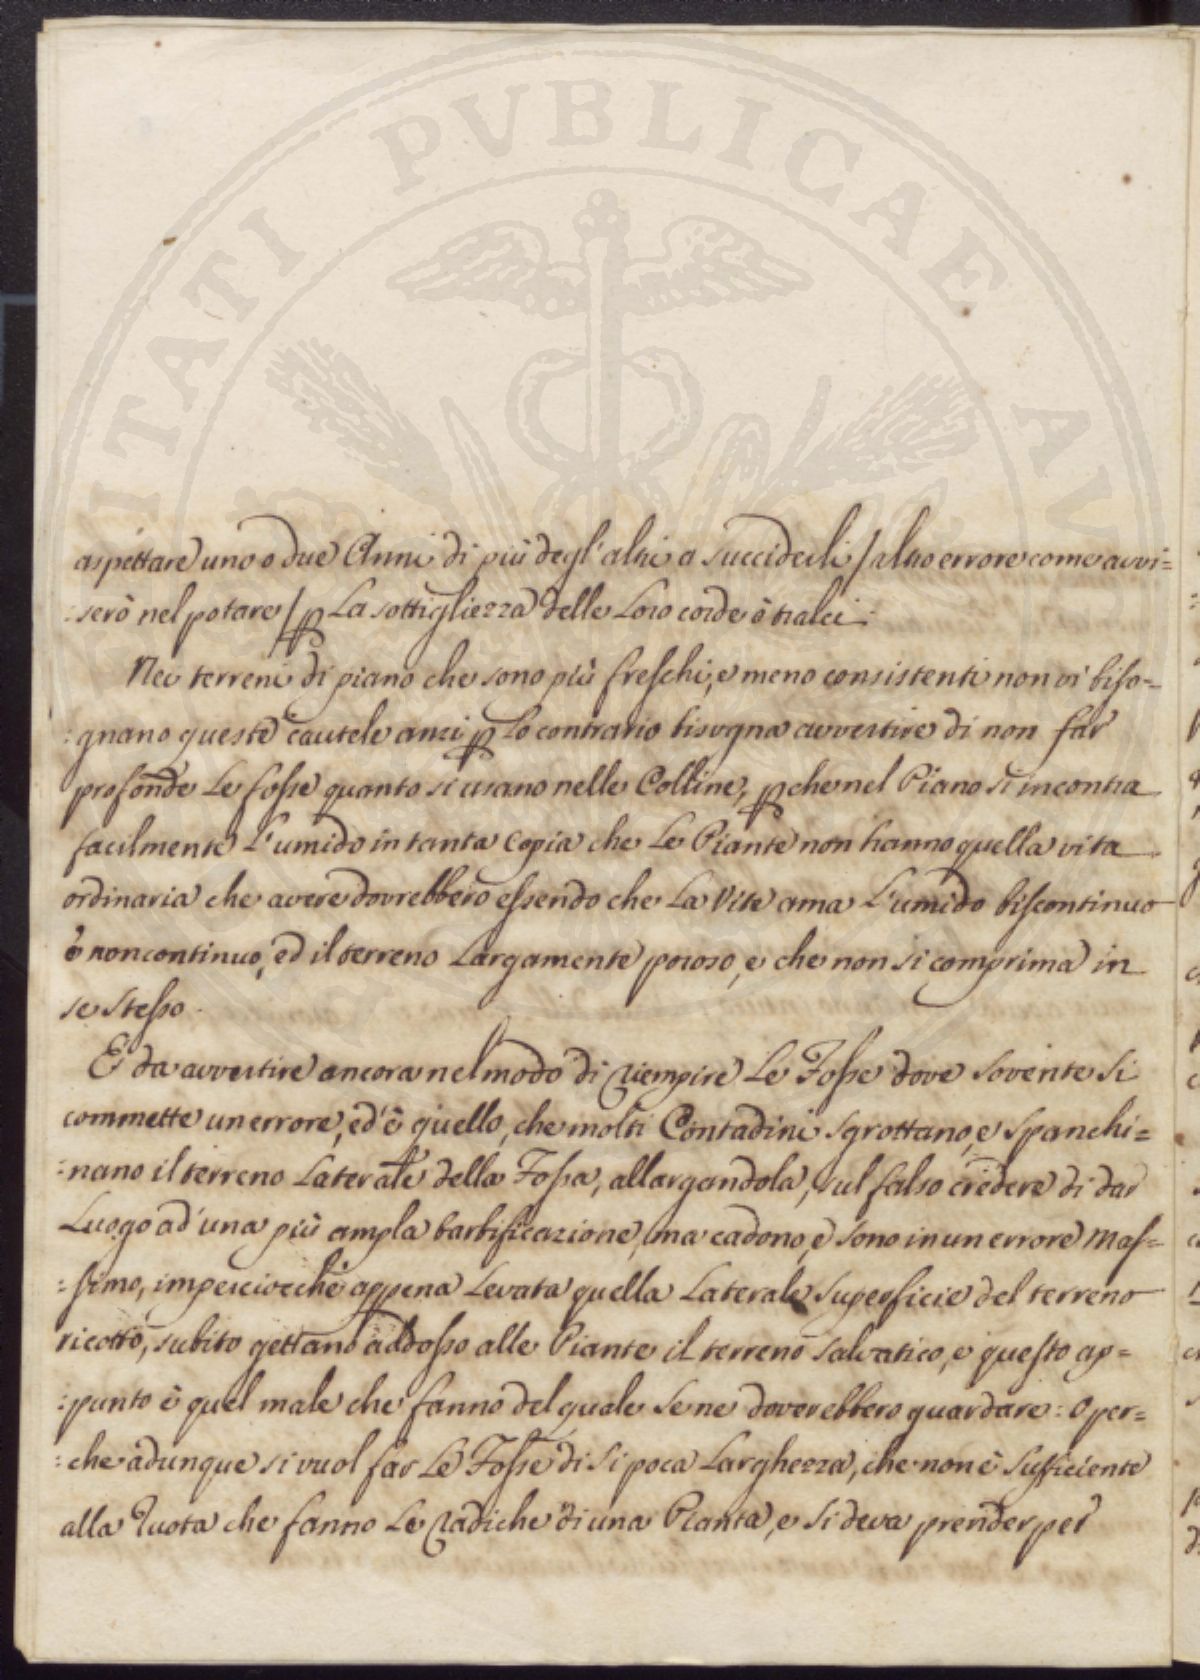 PVBLICAE
ITATI
AV
aspettare uno o due Anni di più degl'altri a succiderli / altro errore come avvi=
:serò nel potare / ꝑ La sottigliezza delle Loro corde ò tralci.
Nei terreni di piano che sono più freschi, e meno consistenti non vi biso=
:gnano queste cautele anzi ꝑ Lo contrario bisogna avvertire di non far
profonde Le fosse quanto si usano nelle Colline, ꝑche nel Piano si incontra
facilmente L'umido in tanta copia che Le Piante non hanno quella vita
ordinaria che avere dovrebbero essendo che La Vite ama L'umido biscontinuo
è non continuo, ed il terreno Largamente poroso, e che non si comprima in
se stesso.
E' da avvertire ancora nel modo di riempire Le Fosse dove sovente si
commette un errore, ed'è quello, che molti Contadini sgrottano, e spanchi=
:nano il terreno Laterale della Fossa, allargandola, sul falso credere di dar
Luogo ad'una più ampla barbificazione, ma cadono, e sono in un errore mas=
:simo, imperciocchè appena Levata quella Laterale superficie del terreno
ricotto, subito gettano addosso alle Piante il terreno salvatico, e questo ap=
:punto è quel male che fanno del quale se ne doverebbero guardare: O per=
:che adunque si vuol far Le Fosse di si poca Larghezza, che non è sufficiente
alla Ruota che fanno Le radiche di una Pianta, e si deva prender per